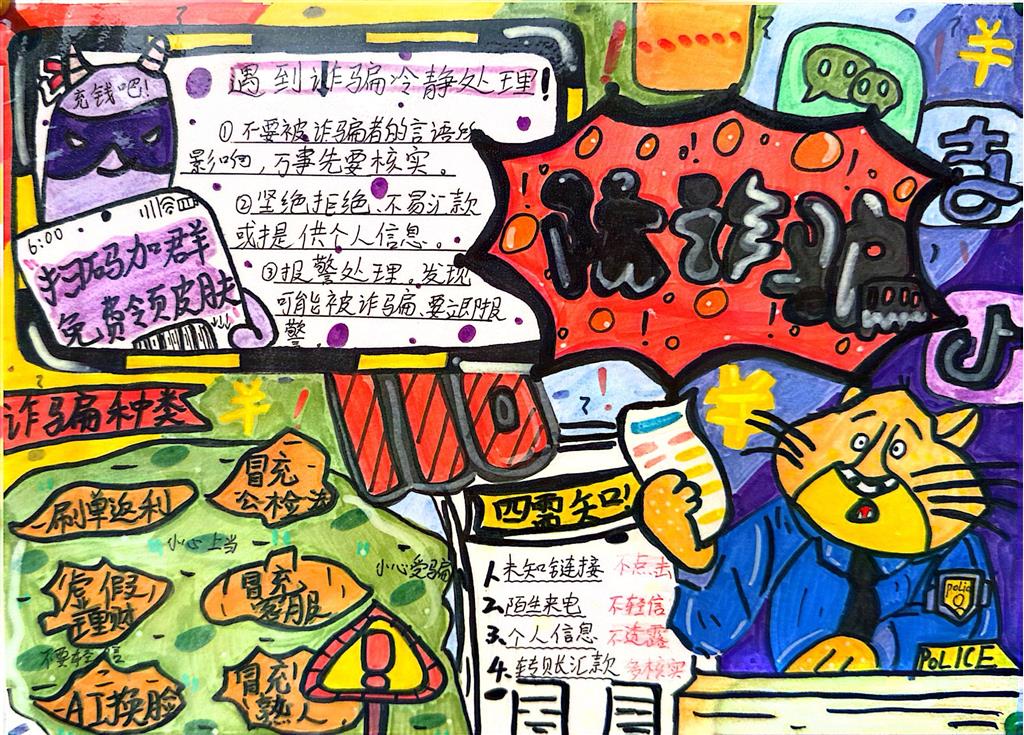 充钱吧!
6:00
扫码加群
免费领皮肤
遇到诈骗冷静处理!
①不要被诈骗者的言语所
影响,万事先要核实。
②坚绝拒绝、不易汇款
或提供个人信息。
③报警处理。发现
可能被诈骗、要立即报
警。
防诈骗
110
诈骗种类
刷单返利
冒充
公检法
小心上当
小心受骗
虚假
理财
冒充
客服
不要轻信
AI换脸
冒充
熟人
四需知!
1.未知链接 不点击
2.陌生来电 不轻信
3.个人信息 不透露
4.转账汇款 多核实
police
POLICE